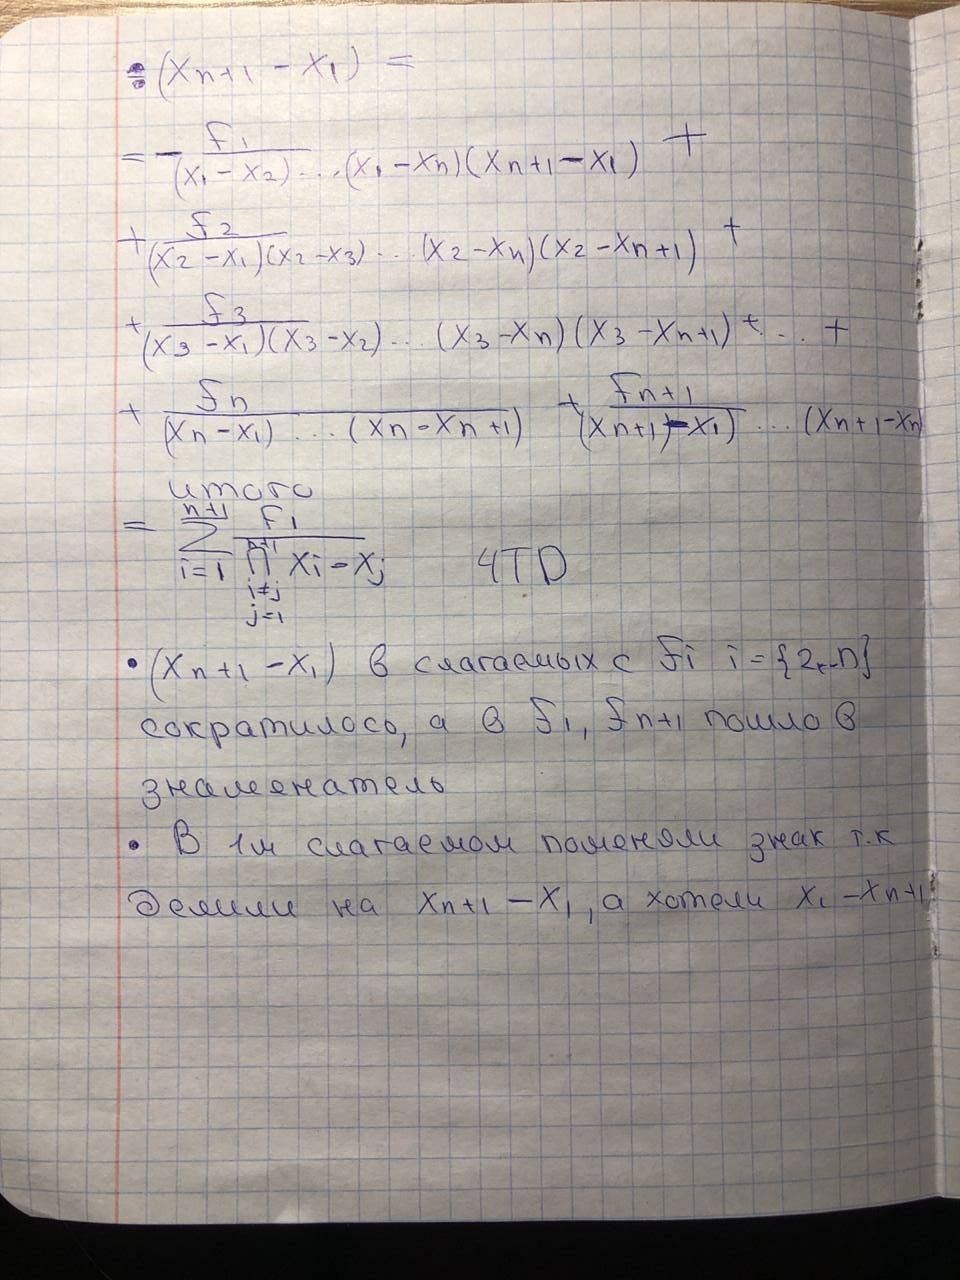 :(Xn+1 − X1) =
= − f1 / (X1 − X2) ... (X1 − Xn)(Xn+1 − X1) +
+ f2 / (X2 − X1)(X2 − X3) ... (X2 − Xn)(X2 − Xn+1) +
+ f3 / (X3 − X1)(X3 − X2) ... (X3 − Xn)(X3 − Xn+1) + ... +
+ fn / (Xn − X1) ... (Xn − Xn+1) + fn+1 / (Xn+1 − X1) ... (Xn+1 − Xn)
итого
= n+1 Σ i=1 fi / n+1 ∏ i≠j j=1 Xi − Xj ЧТD
• (Xn+1 − X1) в слагаемых с fi i = {2,..n}
сократилось, а в f1, fn+1 пошло в
знаменатель
• В 1м слагаемом поменяли знак т.к
делили на Xn+1 − X1, а хотели X1 − Xn+1